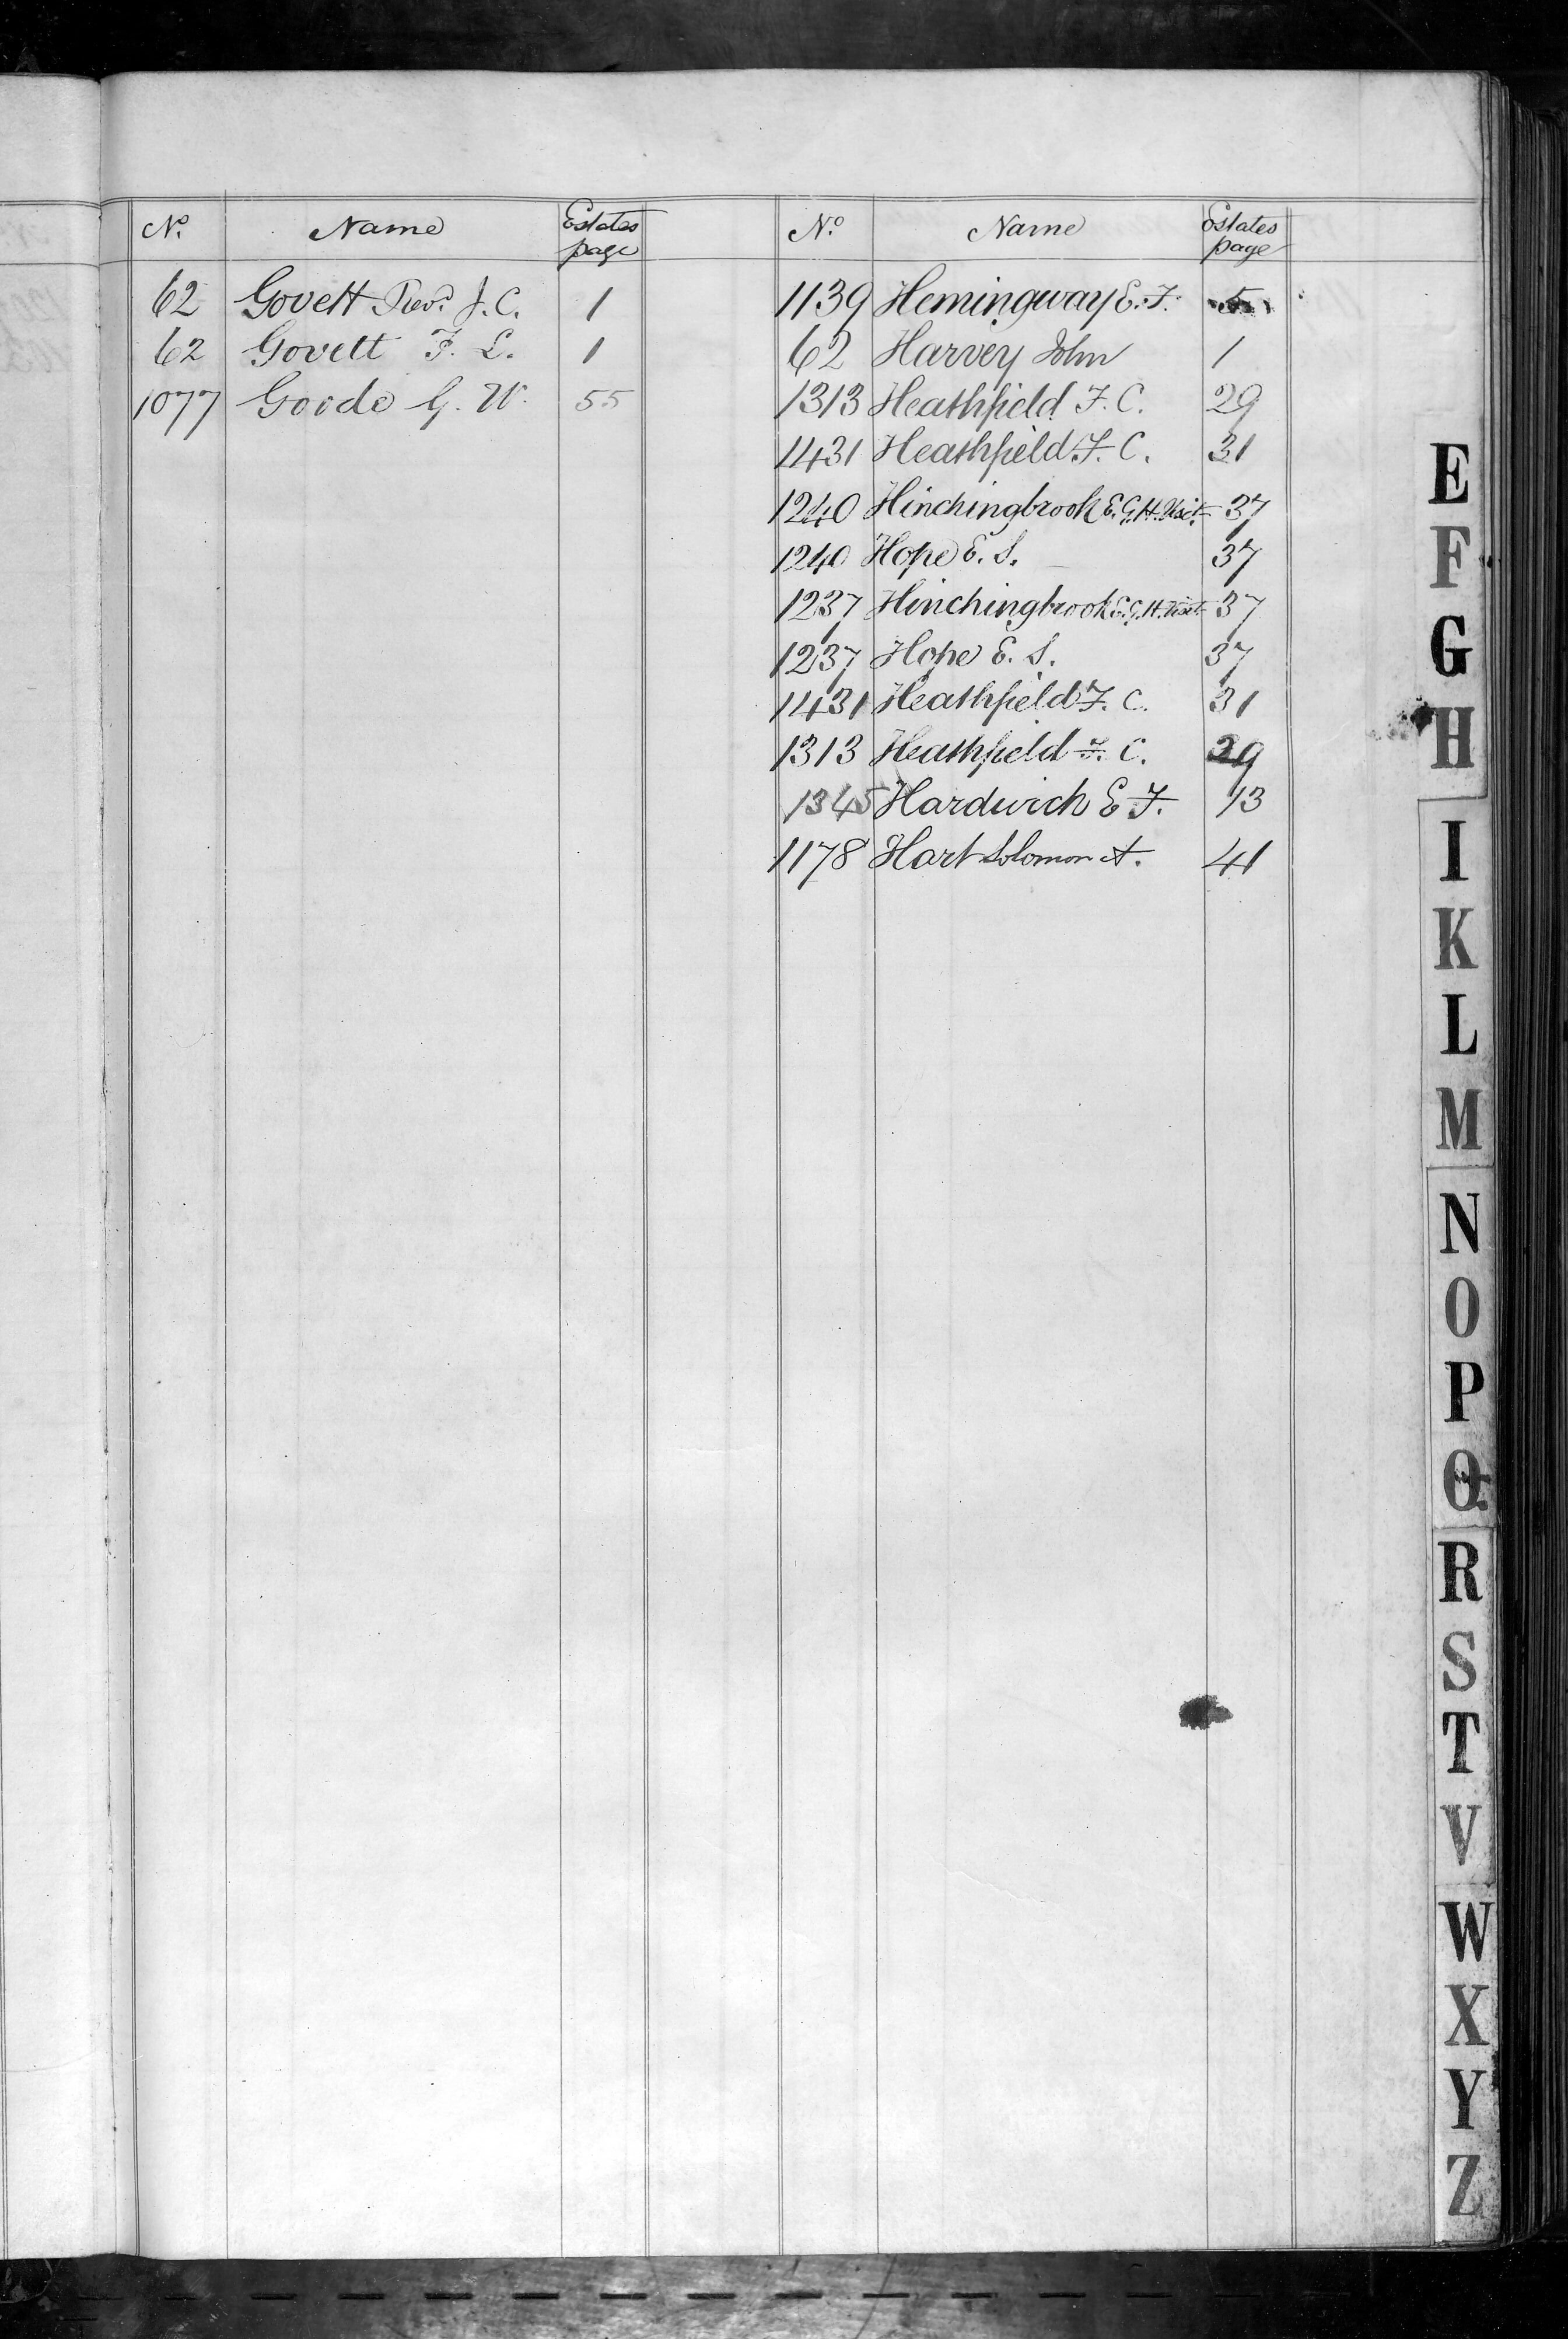 No. Name Estates page
62 Govett Revd. J. C. 1
62 Govett F. L. 1
1077 Goode G. W. 55
No. Name Estates page
1139 Hemingway E. F. 5
62 Harvey John 1
1313 Heathfield F. C. 29
1431 Heathfield F. C. 31
1240 Hinchingbrook E. G. H. Visct. 37
1240 Hope E. S. 37
1237 Hinchingbrook E. G. H. Visct. 37
1237 Hope E. S. 37
1431 Heathfield F. C. 31
1313 Heathfield F. C. 29
1345 Hardwich E F. 13
1178 Hart Solomon A. 41
E
F
G
H
I
K
L
M
N
O
P
Q
R
S
T
V
W
X
Y
Z